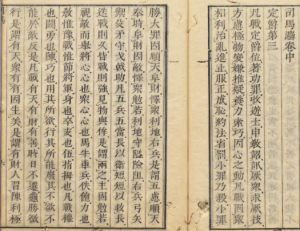 司馬灋卷中
定爵第三
凡戰定爵位著功罪收遊士申教詔訊厥衆求厥技
方慮極物變嫌推疑養力索巧因心之動凡戰固衆
相利治亂進止服正成恥約法省罰小罪乃殺小罪
勝大罪因順天阜財懌衆利地右兵是謂五慮順天
奉時阜財因敵懌衆勉若利地守隘險阻右兵弓矢
禦殳矛守戈戟助凡五兵五當長以衛短短以救長
迭戰則久皆戰則強見物與侔是謂兩之主固勉若
視敵而舉將心心也衆心心也馬牛車兵佚飽力也
教惟豫戰惟節將軍身也卒支也伍指拇也凡戰權
也鬭勇也陳巧也用其所欲行其所能廢其不欲不
能於敵反是凡戰有天有財有善時日不遷龜勝微
行是謂有天衆有有因生美是謂有財人習陳利極